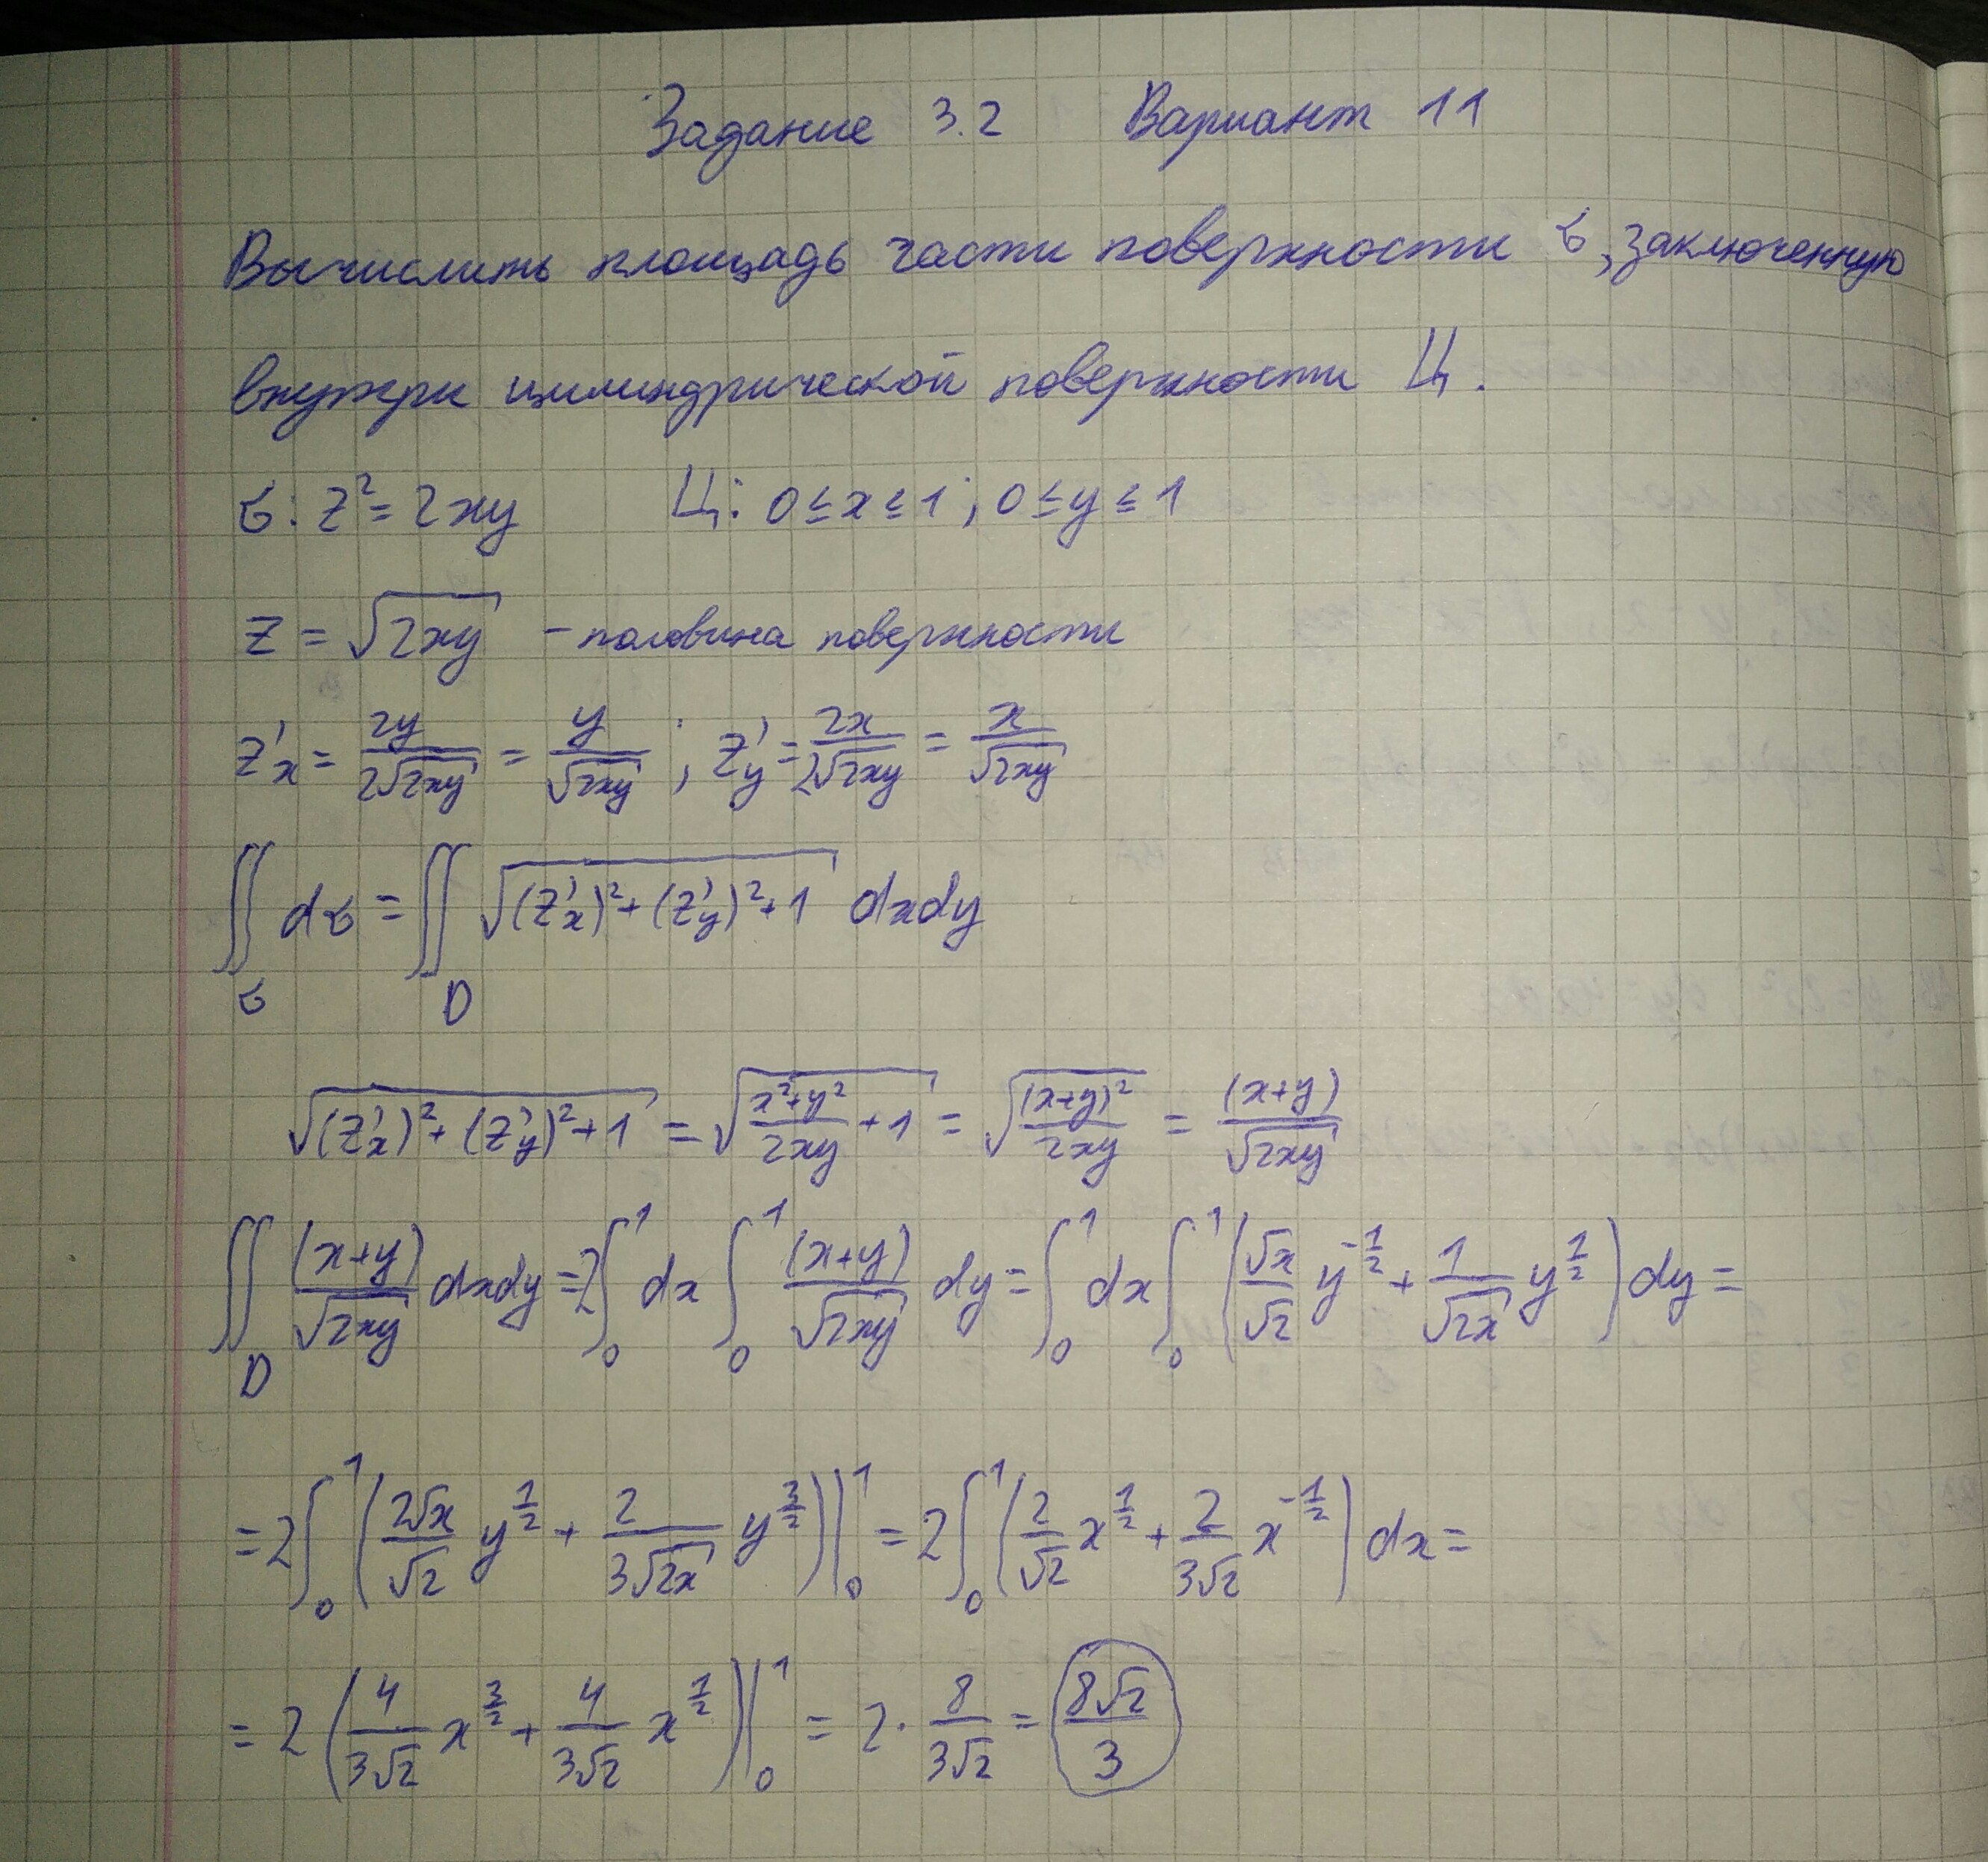 Задание 3.2 Вариант 11
Вычислить площадь части поверхности σ, заключенную
внутри цилиндрической поверхности Ц.
σ: z² = 2xy Ц: 0 ≤ x ≤ 1; 0 ≤ y ≤ 1
z = √(2xy) – половина поверхности
z'ₓ = 2y/(2√(2xy)) = y/√(2xy); z'_y = 2x/(2√(2xy)) = x/√(2xy)
∬_σ dσ = ∬_D √((z'ₓ)² + (z'_y)² + 1) dxdy
√((z'ₓ)² + (z'_y)² + 1) = √((x²+y²)/(2xy) + 1) = √((x+y)²/(2xy)) = (x+y)/√(2xy)
∬_D (x+y)/√(2xy) dxdy = 2∫₀¹ dx ∫₀¹ (x+y)/√(2xy) dy = ∫₀¹ dx ∫₀¹ (√x/√2 y^(-1/2) + 1/√(2x) y^(1/2)) dy =
= 2∫₀¹ (2√x/√2 y^(1/2) + 2/(3√(2x)) y^(3/2))|₀¹ = 2∫₀¹ (2/√2 x^(1/2) + 2/(3√2) x^(-1/2)) dx =
= 2 (4/(3√2) x^(3/2) + 4/(3√2) x^(1/2))|₀¹ = 2 · 8/(3√2) = 8√2/3